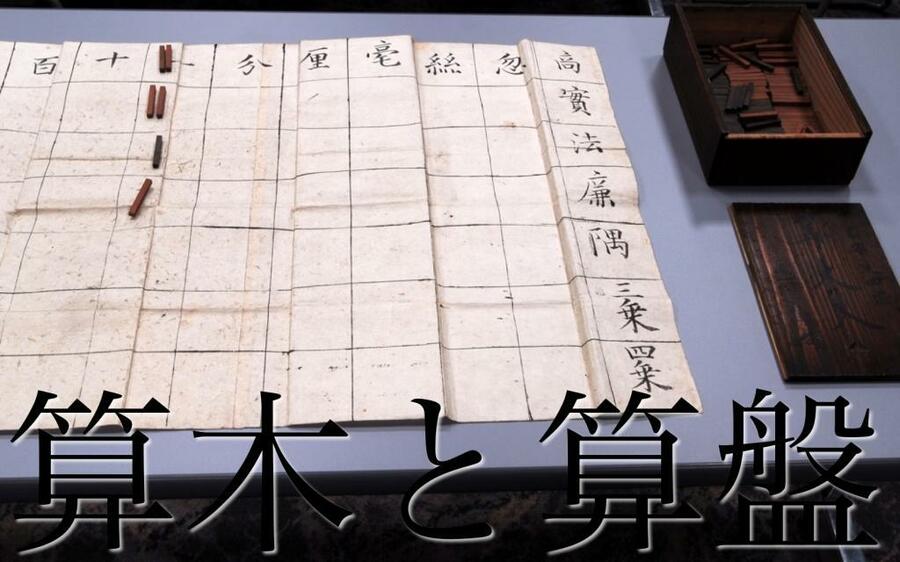 百 十 一 分 厘 毫 絲 忽
商
實
法
廉
隅
三乗
四乗
算木と算盤